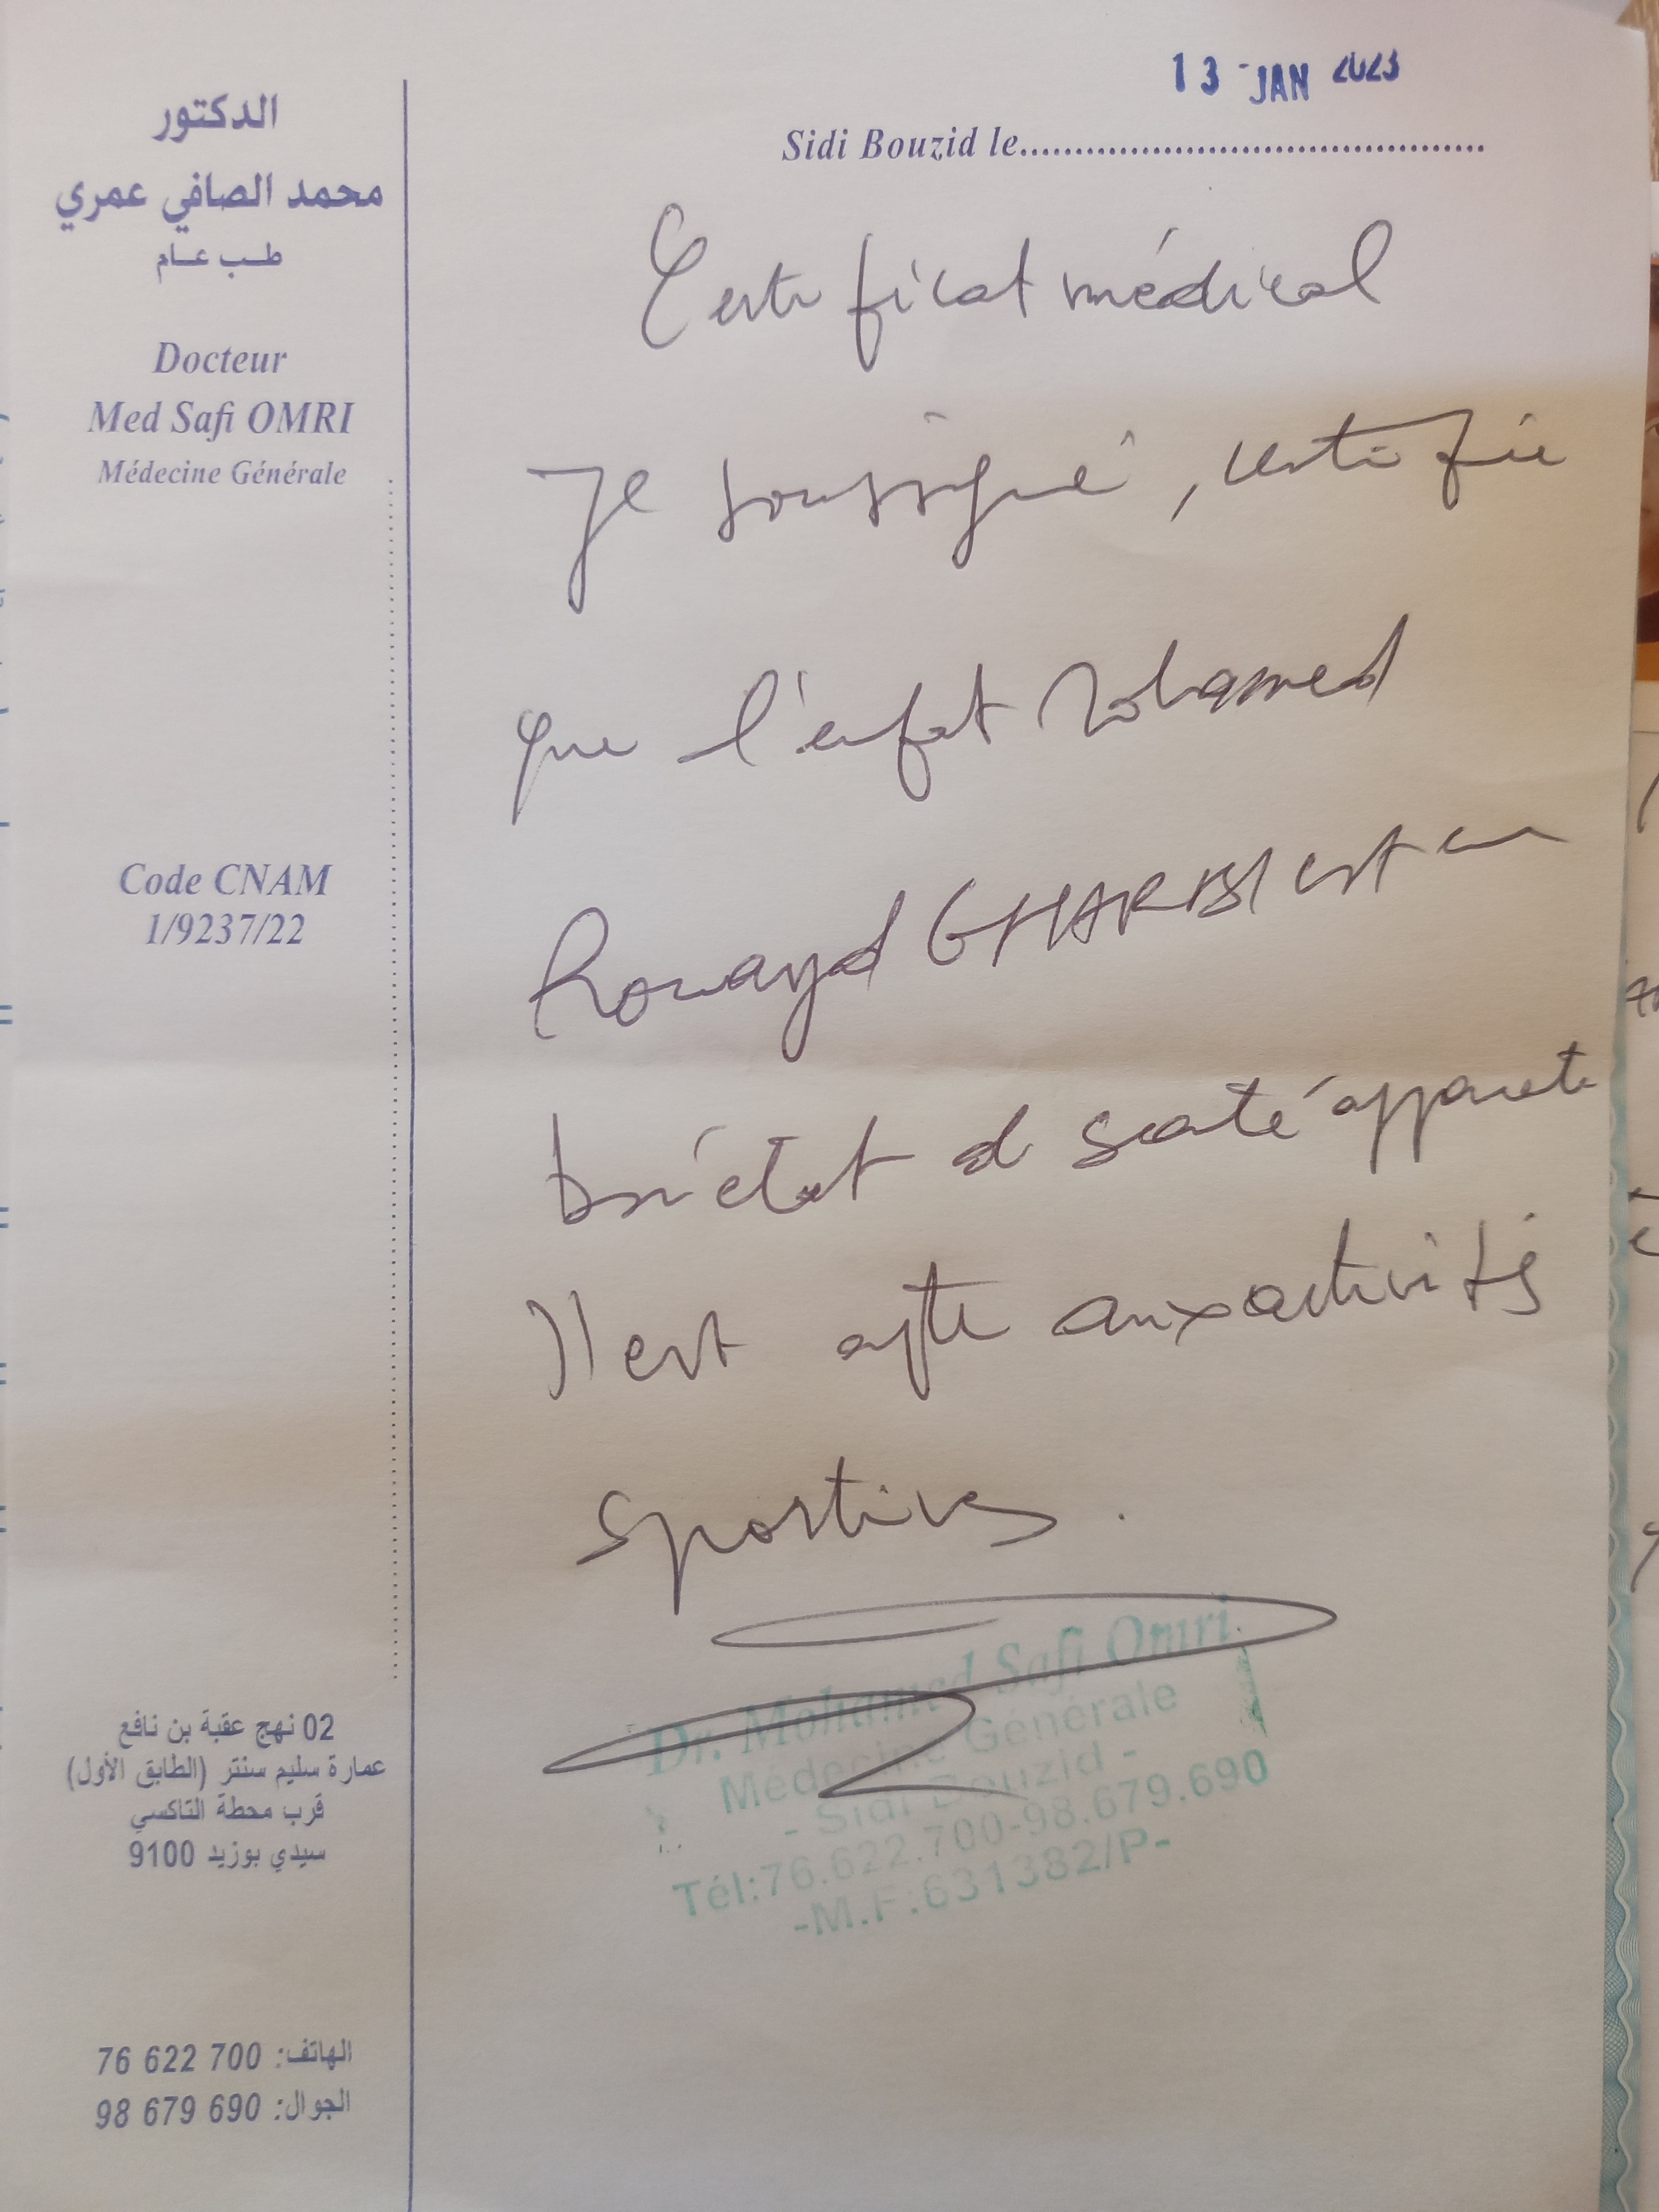 13 JAN 2023
Sidi Bouzid le
الدكتور
محمد الصافي عمري
طب عام
Docteur
Med Safi OMRI
Médecine Générale
Code CNAM
1/9237/22
02 نهج عقبة بن نافع
عمارة سليم سنتر (الطابق الأول)
قرب محطة التاكسي
سيدي بوزيد 9100
الهاتف: 76 622 700
الجوال: 98 679 690
Certificat médical
Je soussigné, certifie
que l'enfat Mohamed
Rouayd GHARBI est en
bn état d santé apparete
Il est apte aux activités
sportives.
Dr. Mohamed Safi Omri
Médecine Générale
- Sidi Bouzid -
Tél:76.622.700-98.679.690
-M.F:631382/P-